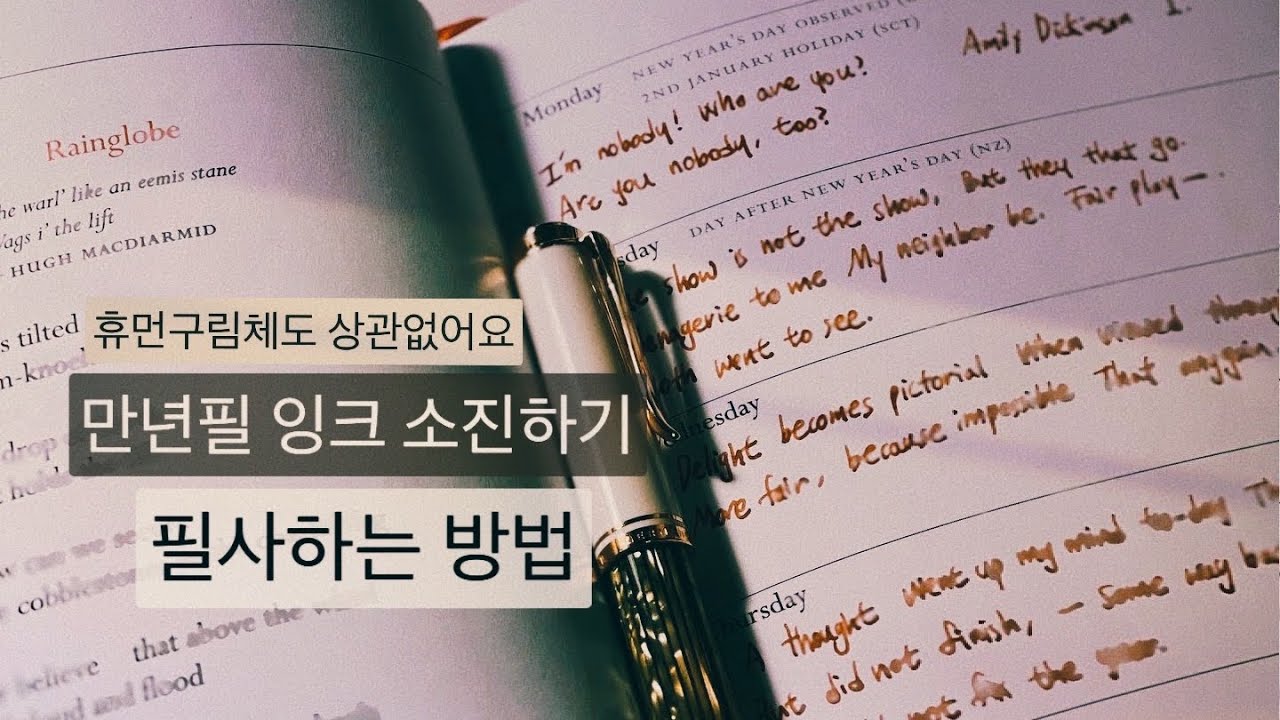 Rainglobe
he warl' like an eemis stane
Wags i' the lift
HUGH MACDIARMID
s tilted
m-knoc
drop
hold
w can we se
cobbleston
that above the w
believe
oud and flood
NEW YEAR'S DAY OBSERVED
2ND JANUARY HOLIDAY (SCT)
Monday
Amily Dickinson I.
I'm nobody! Who are you?
Are you nobody, too?
DAY AFTER NEW YEAR'S DAY (NZ)
sday
show is not the show, But they that go.
enagerie to me My neighbor be. Fair play—.
oth went to see.
dnesday
Delight becomes pictorial When viewed throug
More fair, because impossible That anygain
hursday
A thought went up my mind to-day Th
did not finish, — some way ba
not for the year.
휴먼구림체도 상관없어요
만년필 잉크 소진하기
필사하는 방법